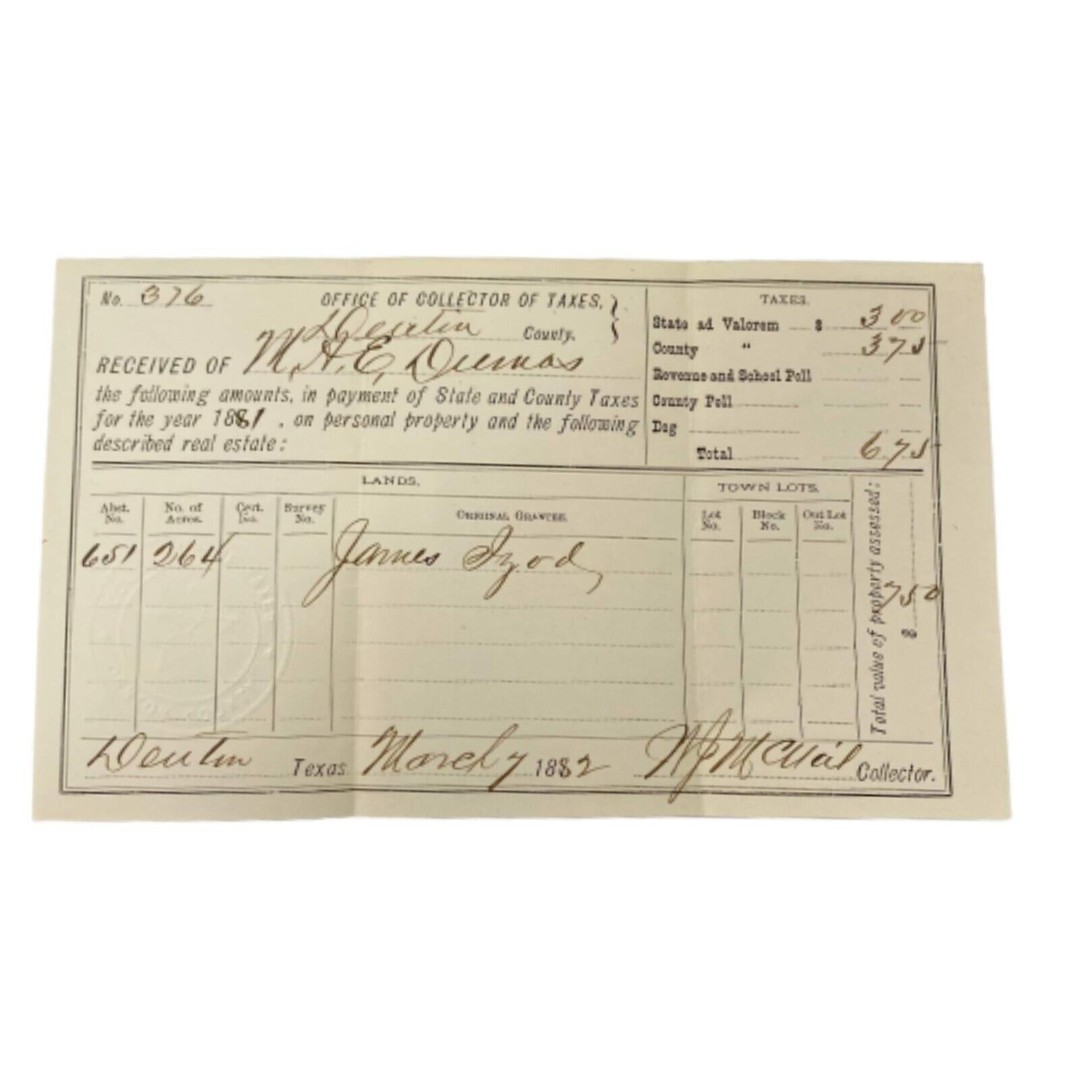 No. 376
OFFICE OF COLLECTOR OF TAXES,
Denton County.
RECEIVED OF M. A. E. Dumas
the following amounts, in payment of State and County Taxes
for the year 1881, on personal property and the following
described real estate:
TAXES.
State ad Valorem $ 3 00
County " 3 75
Revenue and School Poll
County Poll
Dog
Total 6 75
LANDS.
TOWN LOTS.
Abst. No. No. of Acres. Cert. No. Survey No. ORIGINAL GRANTEE. Lot No. Block No. Out Lot No.
651 264 James Izod
Total value of property assessed: $ 750
Denton Texas March 7 1882 Collector.